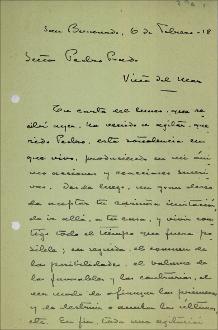 San Bernardo, 6 de Febrero - 18
Señor Pedro Prado
Viña del Mar
Tu carta del lunes, que re-
cibí ayer, ha venido a agitar, que-
rido Pedro, esta somnolencia en
que vivo, produciendo en mi áni-
mo acciones y reacciones suce-
sivas. Desde luego, un gran deseo
de aceptar tu cariñosa invitación,
de ir allí, a tu casa, y vivir con-
tigo todo el tiempo que fuera po-
sible; en seguida, el examen de
las posibilidades, el balance de
lo favorable y lo contrario, el
ver modo de afianzar lo primero
y de destruir o anular lo último,
etc. En fin, toda una agitación